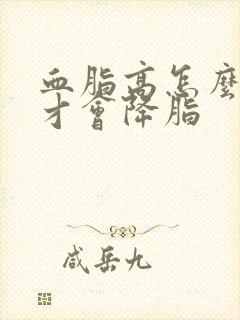 血脂高怎麼
才會降脂
咸岳九